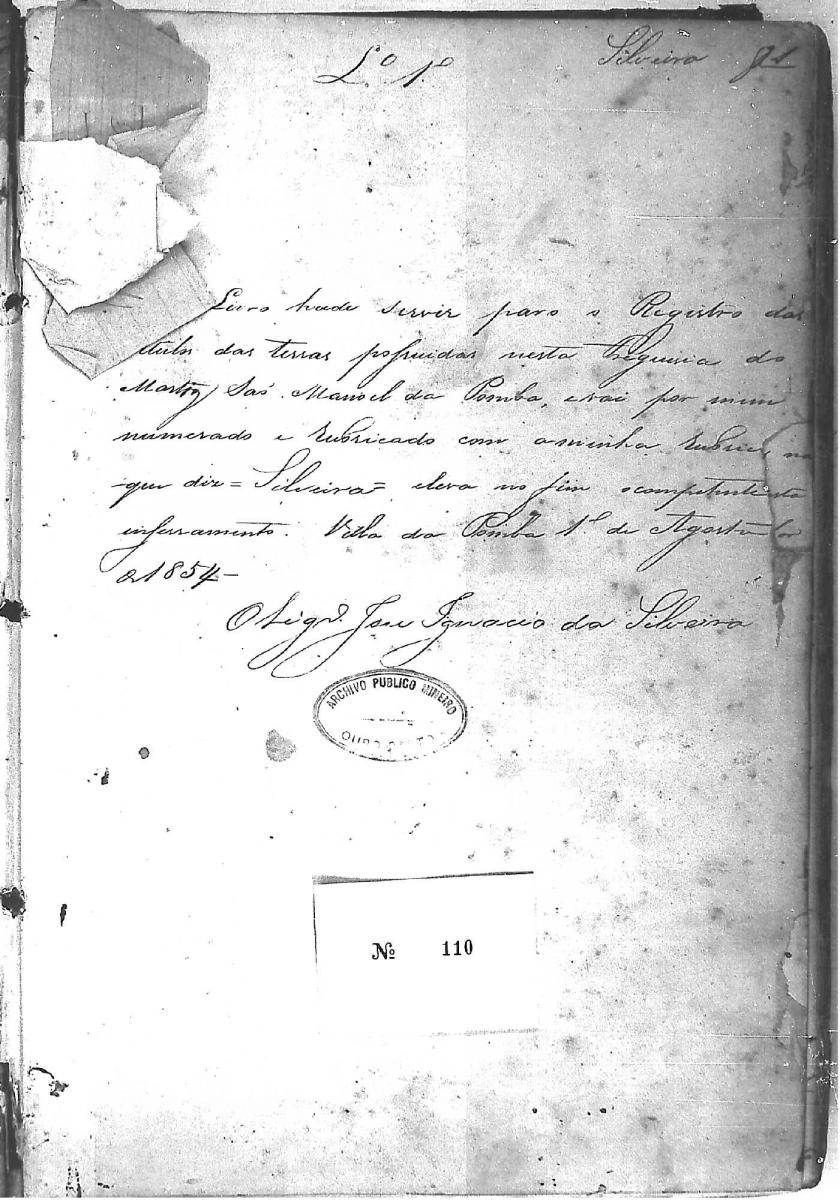 L.º 1.º
Silveira
Livro hade servir para o Registro das
titulos das terras possuidas nesta Freguesia do
Martyr São Manoel da Pomba, e vai por mim
numerado e rubricado com a minha rubrica,
que diz = Silveira = eleva no fim o competente
enserramento. Villa da Pomba 1.º de Agosto
1854 —
O Vigr.º José Ignacio da Silveira
ARCHIVO PUBLICO MINEIRO
Nº 110